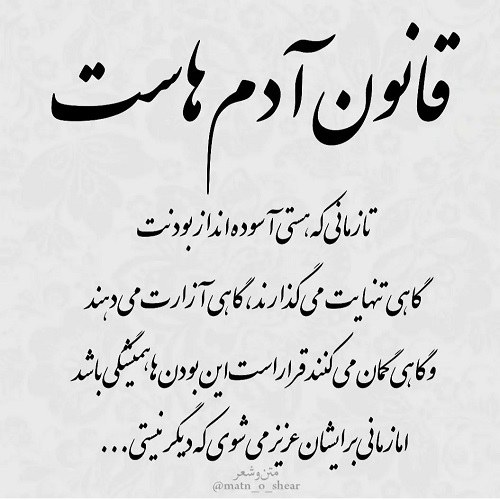 قانون آدم هاست
تا زمانی که هستی آسوده اند از بودنت
گاهی تنهایت می گذارند، گاهی آزارت می دهند
و گاهی گمان می کنند قرار است این بودن ها همیشگی باشد
اما زمانی برایشان عزیز می شوی که دیگر نیستی...
متن و شعر
@matn_o_shear